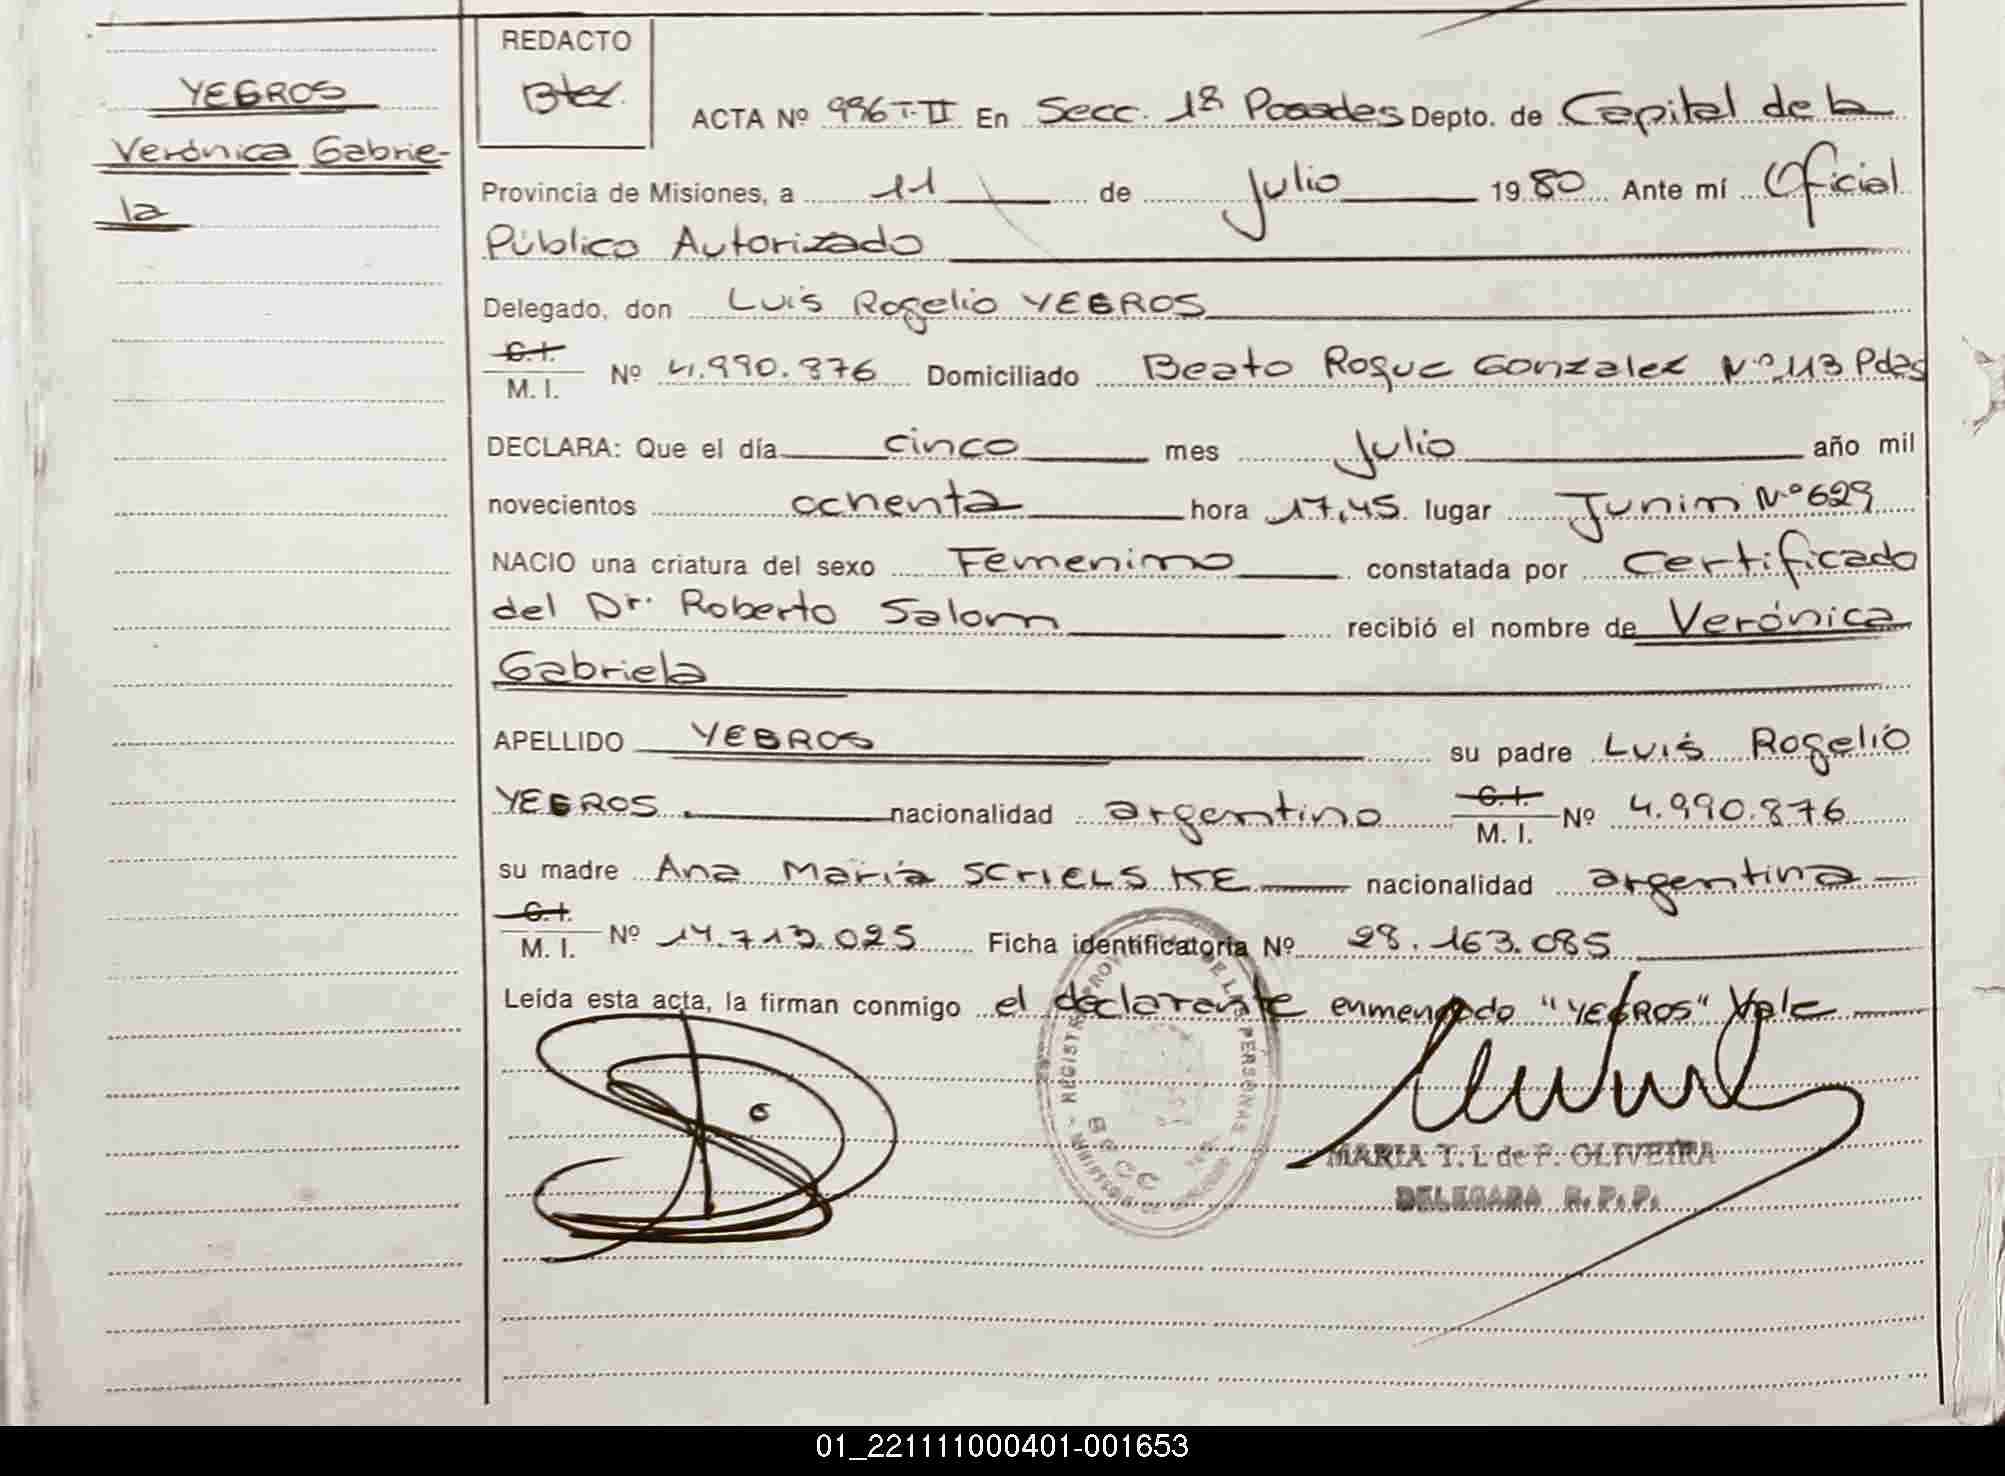 YEGROS
Verónica Gabrie-
la
REDACTO
ACTA Nº 996 T-II En Secc. 1ª Posadas Depto. de Capital de la
Provincia de Misiones, a 11 de Julio 1980 Ante mí Oficial
Público Autorizado
Delegado, don Luis Rogelio YEGROS
C.I.
M. I. Nº 4.990.876 Domiciliado Beato Roque Gonzalez Nº 113 Pdas
DECLARA: Que el día cinco mes Julio año mil
novecientos ochenta hora 17,45 lugar Junin Nº 629
NACIO una criatura del sexo Femenino constatada por Certificado
del Dr. Roberto Salom recibió el nombre de Verónica
Gabriela
APELLIDO YEGROS su padre Luis Rogelio
YEGROS nacionalidad argentino C.I. M. I. Nº 4.990.876
su madre Ana María SCRIELSKE nacionalidad argentina
C.I.
M. I. Nº 14.713.025 Ficha identificatoria Nº 28.163.085
Leída esta acta, la firman conmigo el declarante enmendado "YEGROS" Vale
MARIA T. I. de P. OLIVEIRA
DELEGADA R.P.P.
01_221111000401-001653